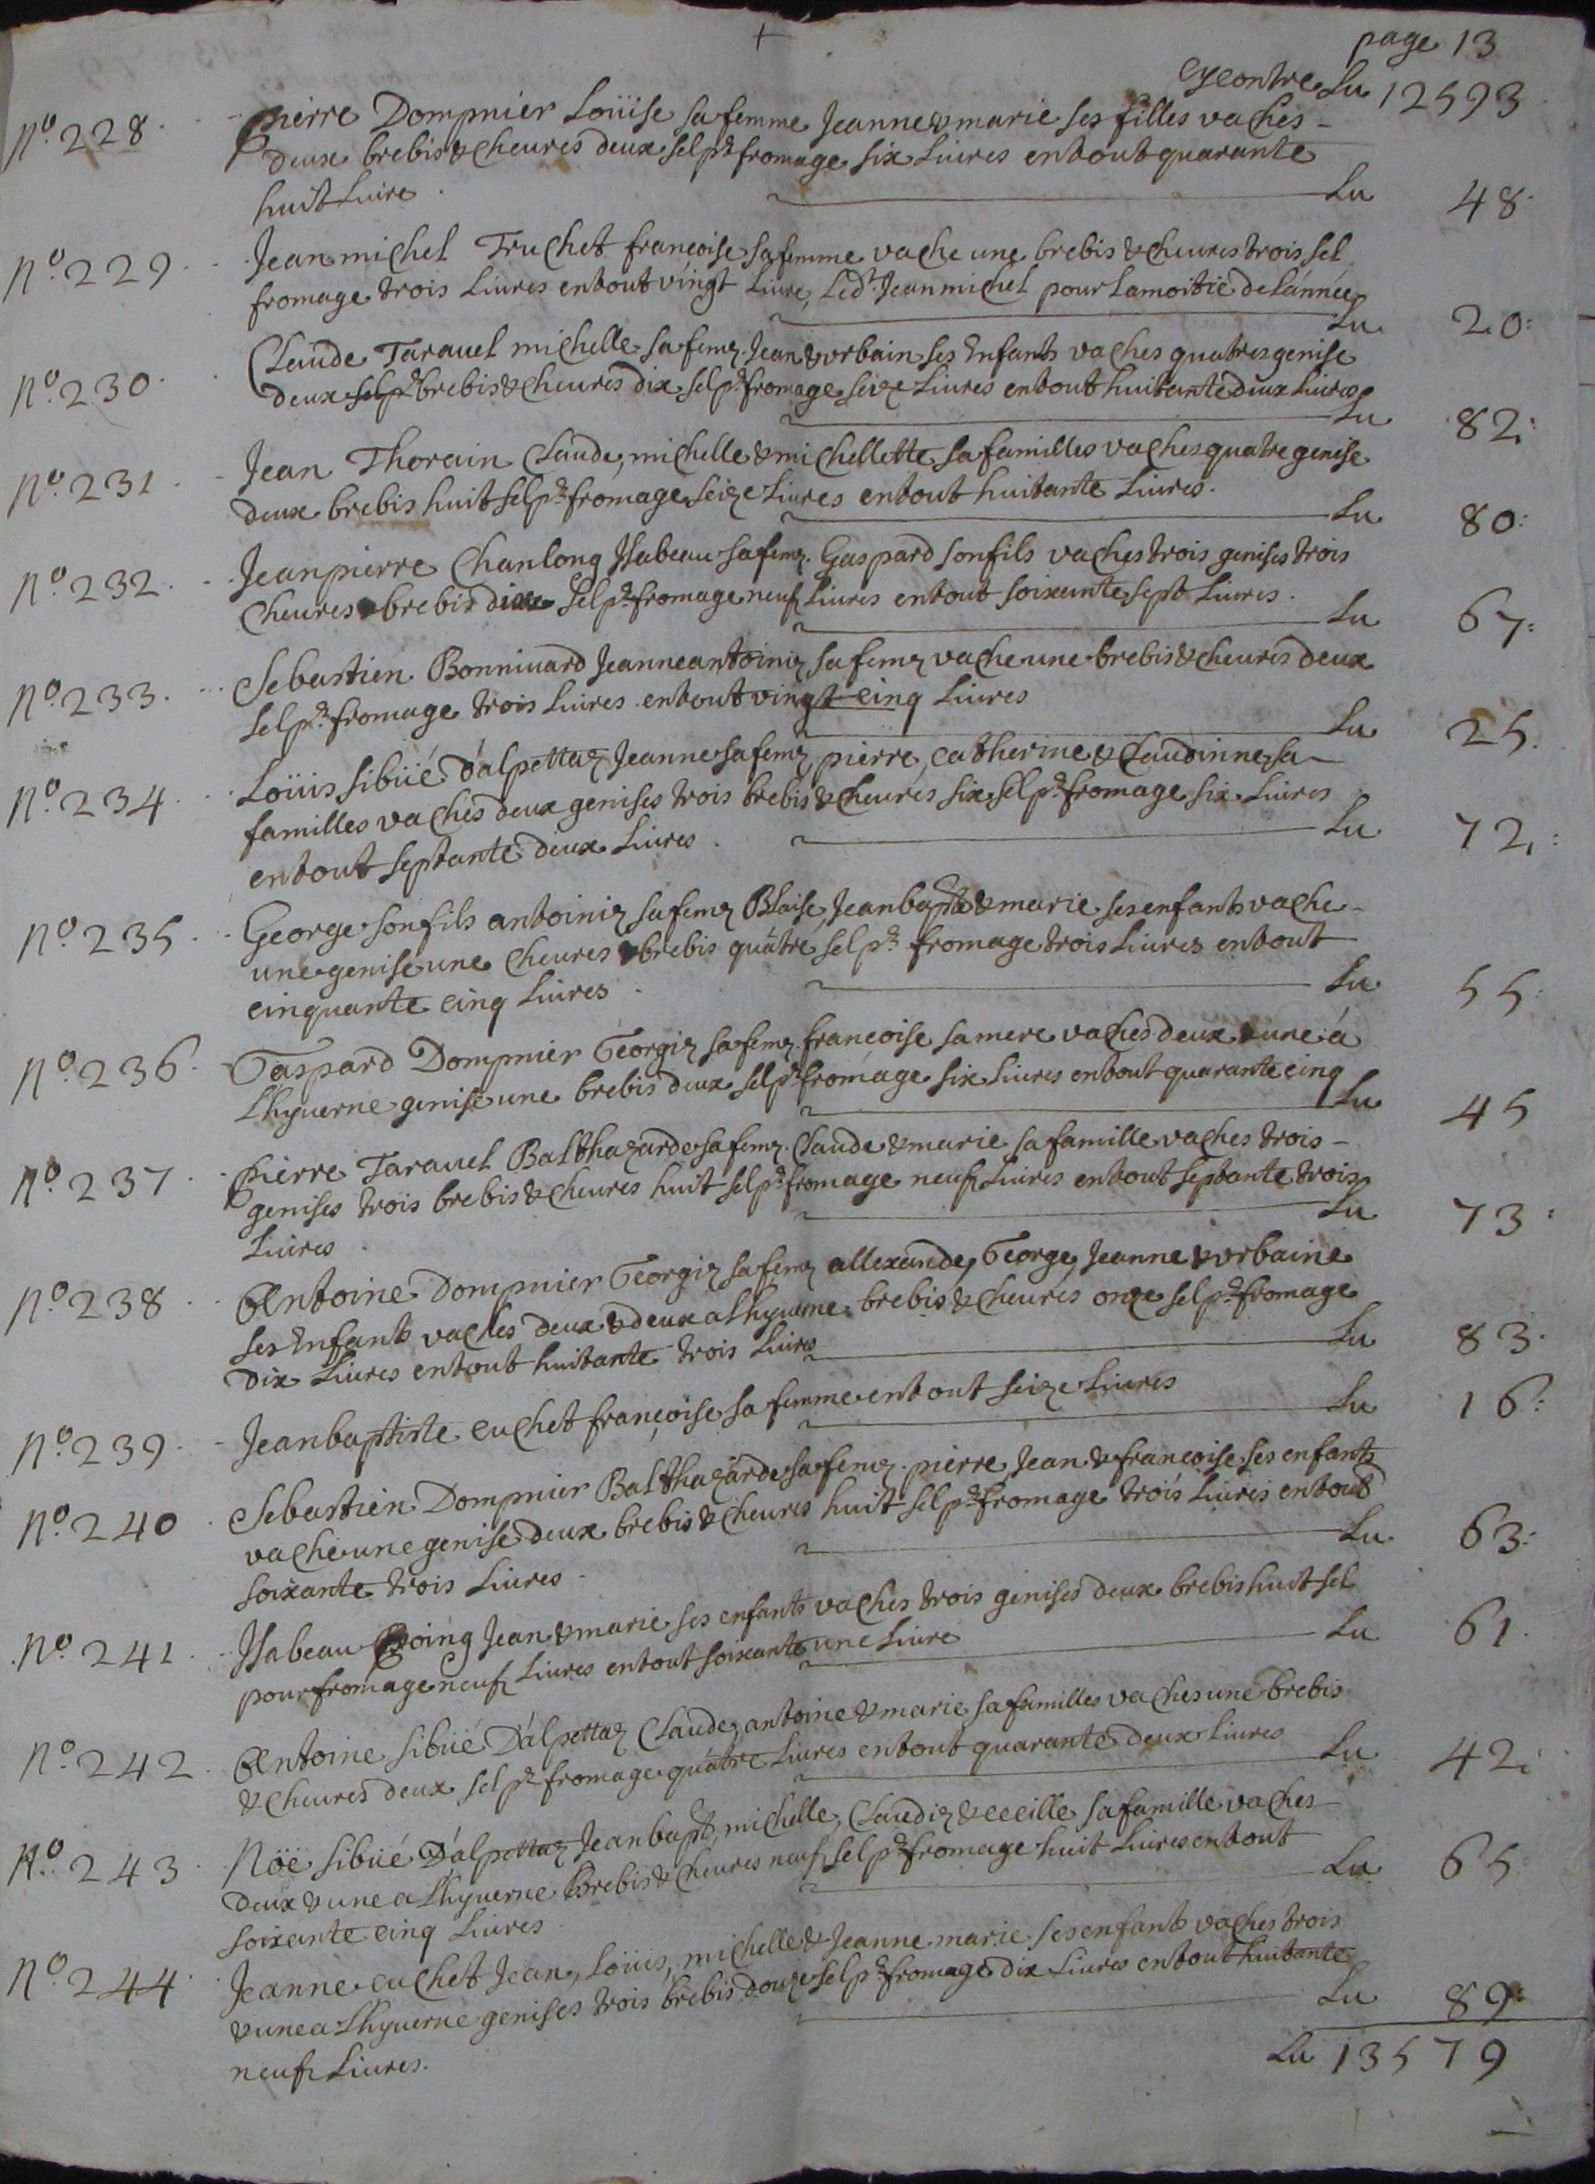 page 13
cy contre Lu 12593
No. 228. pierre Dompnier Loüise sa femme Jeanne & marie ses filles vaches
deux brebis & cheures deux sel pr. fromage six Liures en tout quarante
huit Liure. Lu 48.
No. 229. Jean michel Truchet francoise sa femme vache une brebis & cheures trois sel
fromage trois Liures en tout vingt Liure, Ledt. Jean michel pour La moitie de L'année
Lu 20:
No. 230. Claude Tarauel michelle sa femz. Jean & vrbain ses Enfants vaches quatres genise
deux selpr brebis & cheures dix sel pr. fromage seize Liures en tout huitante deux Liures
Lu 82:
No. 231. Jean Thorain Claude, michelle & michellette sa familles vaches quatre genise
deux brebis huit sel pr. fromage seize Liures en tout huitante Liures.
Lu 80:
No. 232. Jean pierre Chanlong Jsabeau sa femz. Gaspard son fils vaches trois genises trois
cheures & brebis dix sel pr. fromage neuf Liures en tout soixante sept Liures.
Lu 67:
No. 233. Sebastien Bonniuard Jeanne antoiniz sa femz vache une brebis & cheures deux
sel pr. fromage trois Liures en tout vingt cinq Liures
Lu 25.
No. 234. Loüis sibüé d'alpettaz Jeanne sa femz, pierre, catherine & Claudinne sa
familles vaches deux genises trois brebis & cheures six sel pr. fromage six Liures
en tout septante deux Liures. Lu 72:
No. 235. George son fils antoiniz sa femz Blaise, Jean bapte & marie ses enfants vache
une genise une cheures & brebis quatre sel pr. fromage trois Liures en tout
cinquante cinq Liures. Lu 55:
No. 236. Gaspard Dompnier Georgiz sa femz. francoise sa mere vaches deux & une a
L'hyuerne genise une brebis deux sel pr. fromage six Liures en tout quarante cinq
Lu 45
No. 237. pierre Tarauel Balthazarde sa femz. Claude & marie sa famille vaches trois
genises trois brebis & cheures huit sel pr. fromage neuf Liures en tout septante trois
Liures. Lu 73:
No. 238. Antoine Dompnier Georgiz sa femz allexandre, George, Jeanne & vrbaine
ses Enfants vaches deux & deux a Lhyuerne brebis & cheures onze sel pr. fromage
dix Liures en tout huitante trois Liures Lu 83.
No. 239. Jean baptiste cuchet françoise sa femme en tout seize Liures Lu 16:
No. 240. Sebastien Dompnier Balthazarde sa femz. pierre, Jean & francoise ses enfants
vache une genise deux brebis & cheures huit sel pr. fromage trois Liures en tout
soixante trois Liures. Lu 63:
No. 241. Jsabeau Jean & marie ses enfants vaches trois genises deux brebis huit sel
pour fromage neuf Liures en tout soixante une Liure Lu 61.
No. 242. Antoine sibüé D'alpettaz Claude, antoine & marie sa familles vaches une brebis
& cheures deux sel pr. fromage quatre Liures en tout quarante deux Liures Lu 42:
No. 243. Nöé sibüé D'alpettaz Jean bapt, michelle, Claudiz & cecille sa famille vaches
deux & une a Lhyuerne Brebis & cheures neuf sel pr. fromage huit Liures en tout
soixante cinq Liures. Lu 65:
No. 244. Jeanne cuchet Jean, Loüis, michelle & Jeanne marie ses enfants vaches trois
& une a Lhyuerne genises trois brebis douze sel pr. fromage dix Liures en tout huitante
neuf Liures. Lu 89:
Lu 13579